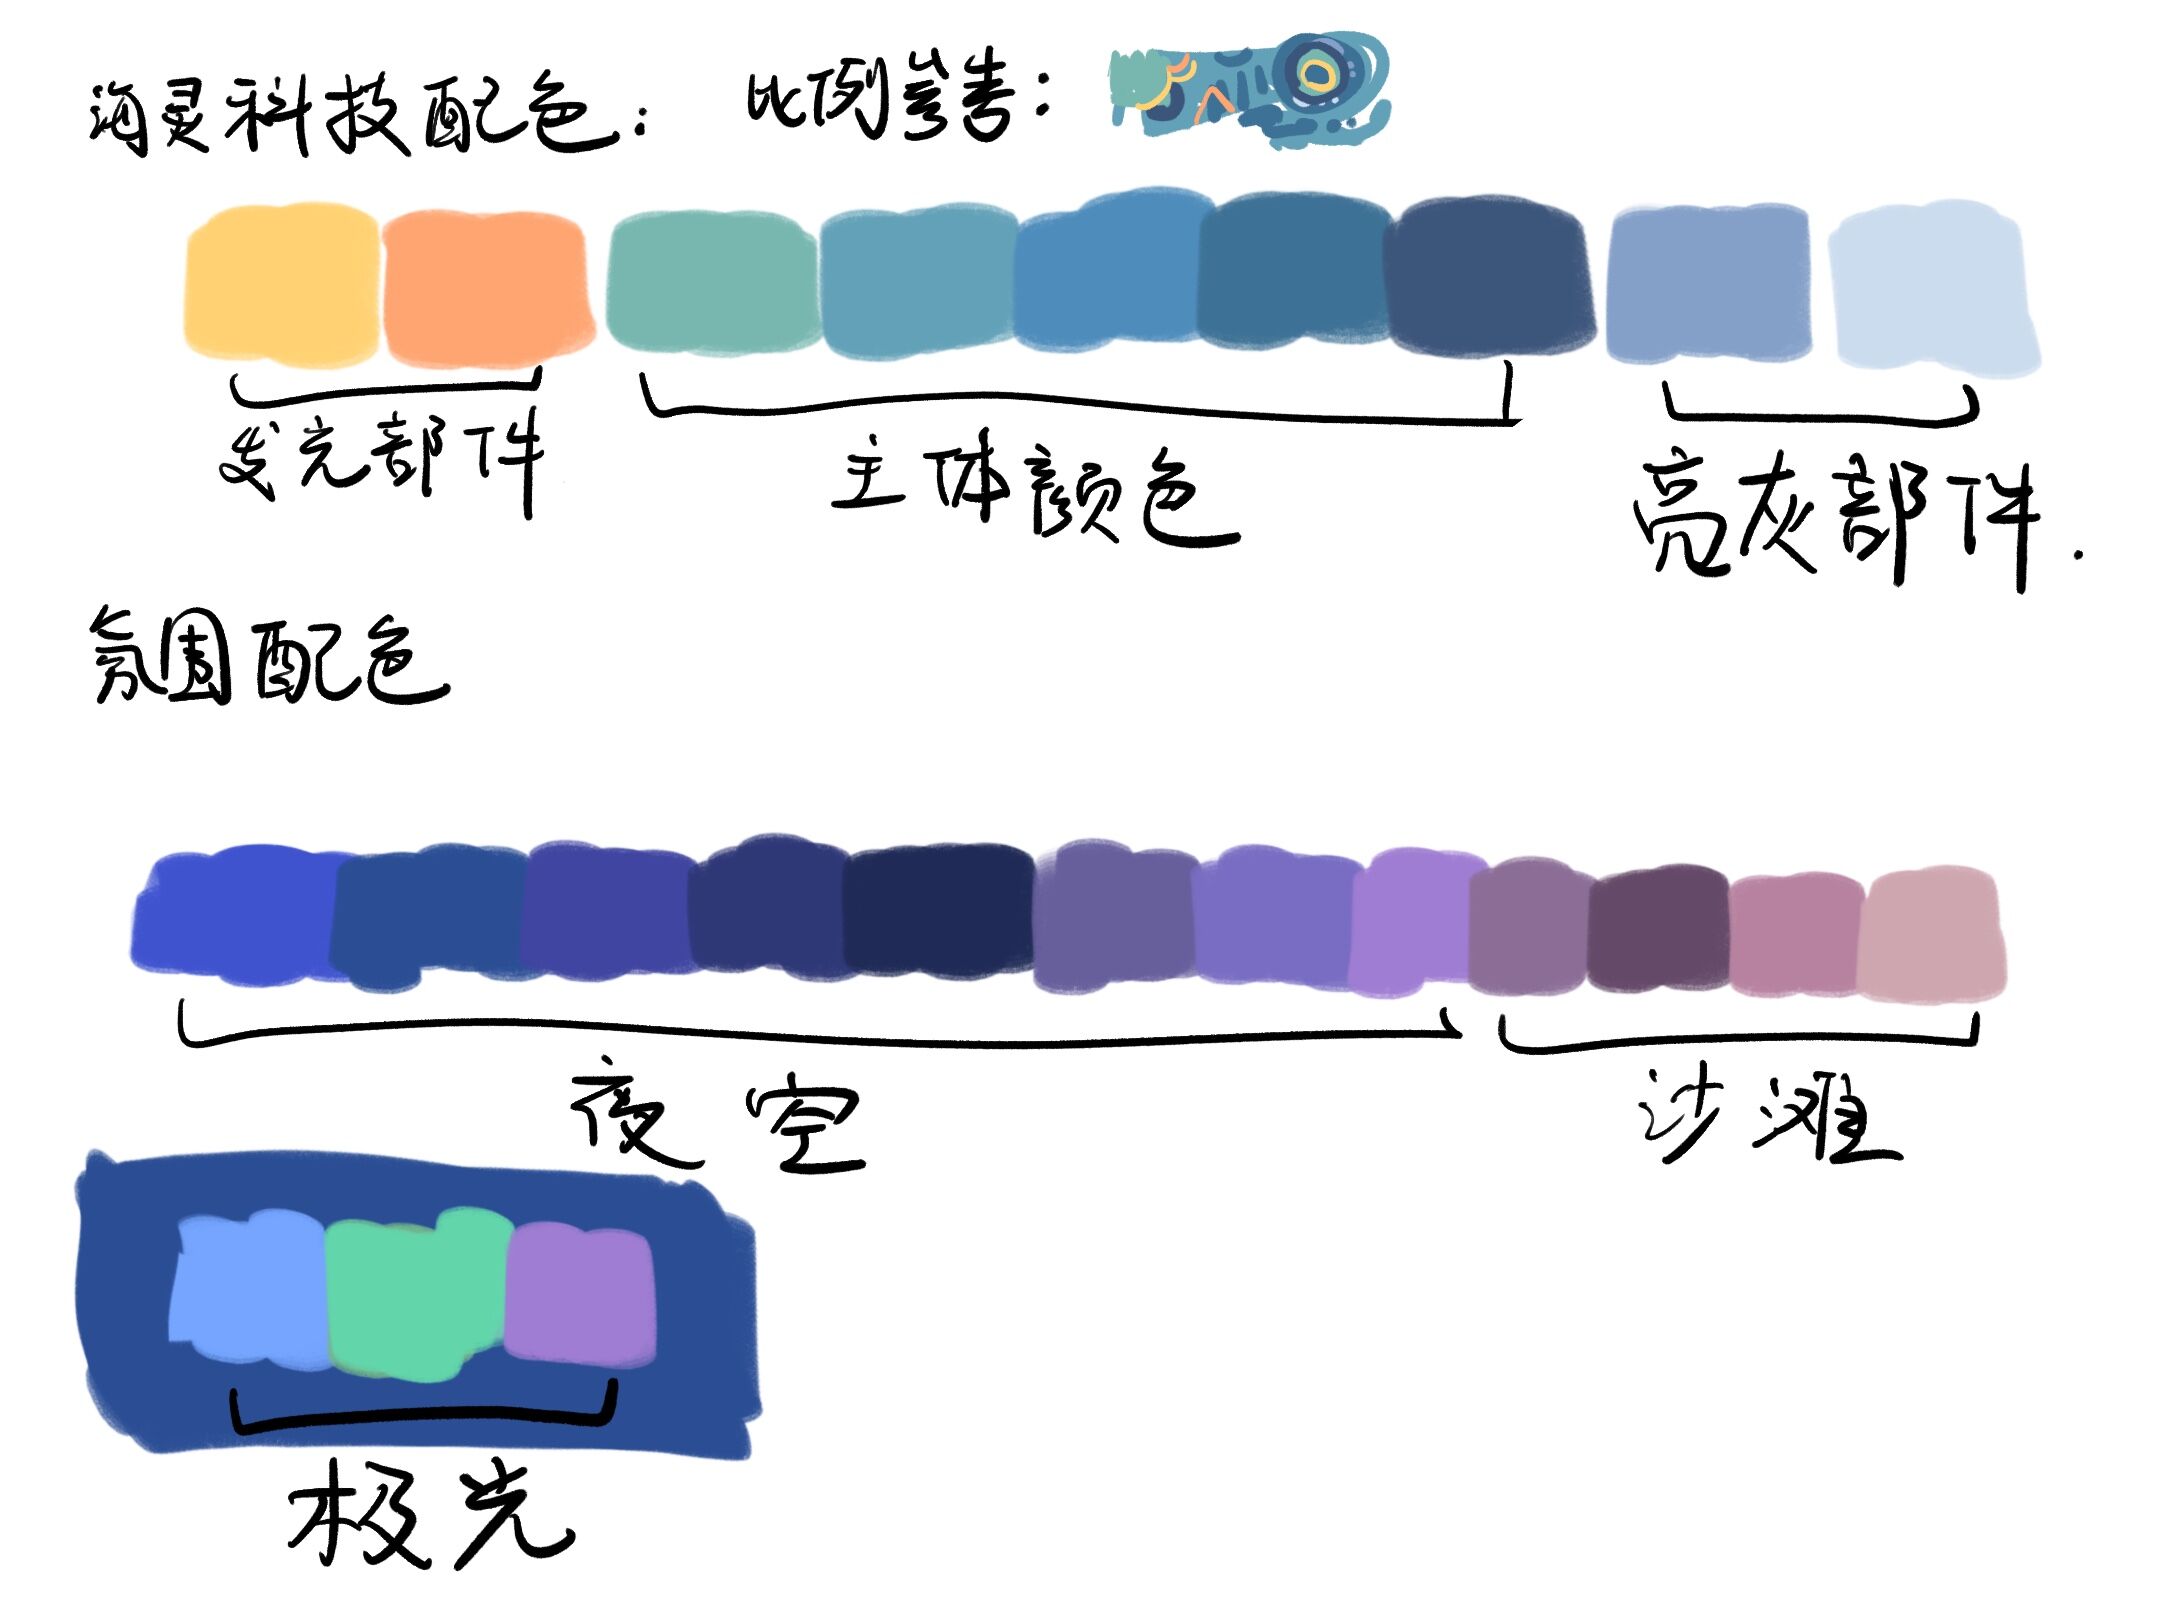 海灵科技配色： 比例参考：
发光部件 主体颜色 亮灰部件.
氛围配色
夜空 沙滩
极光